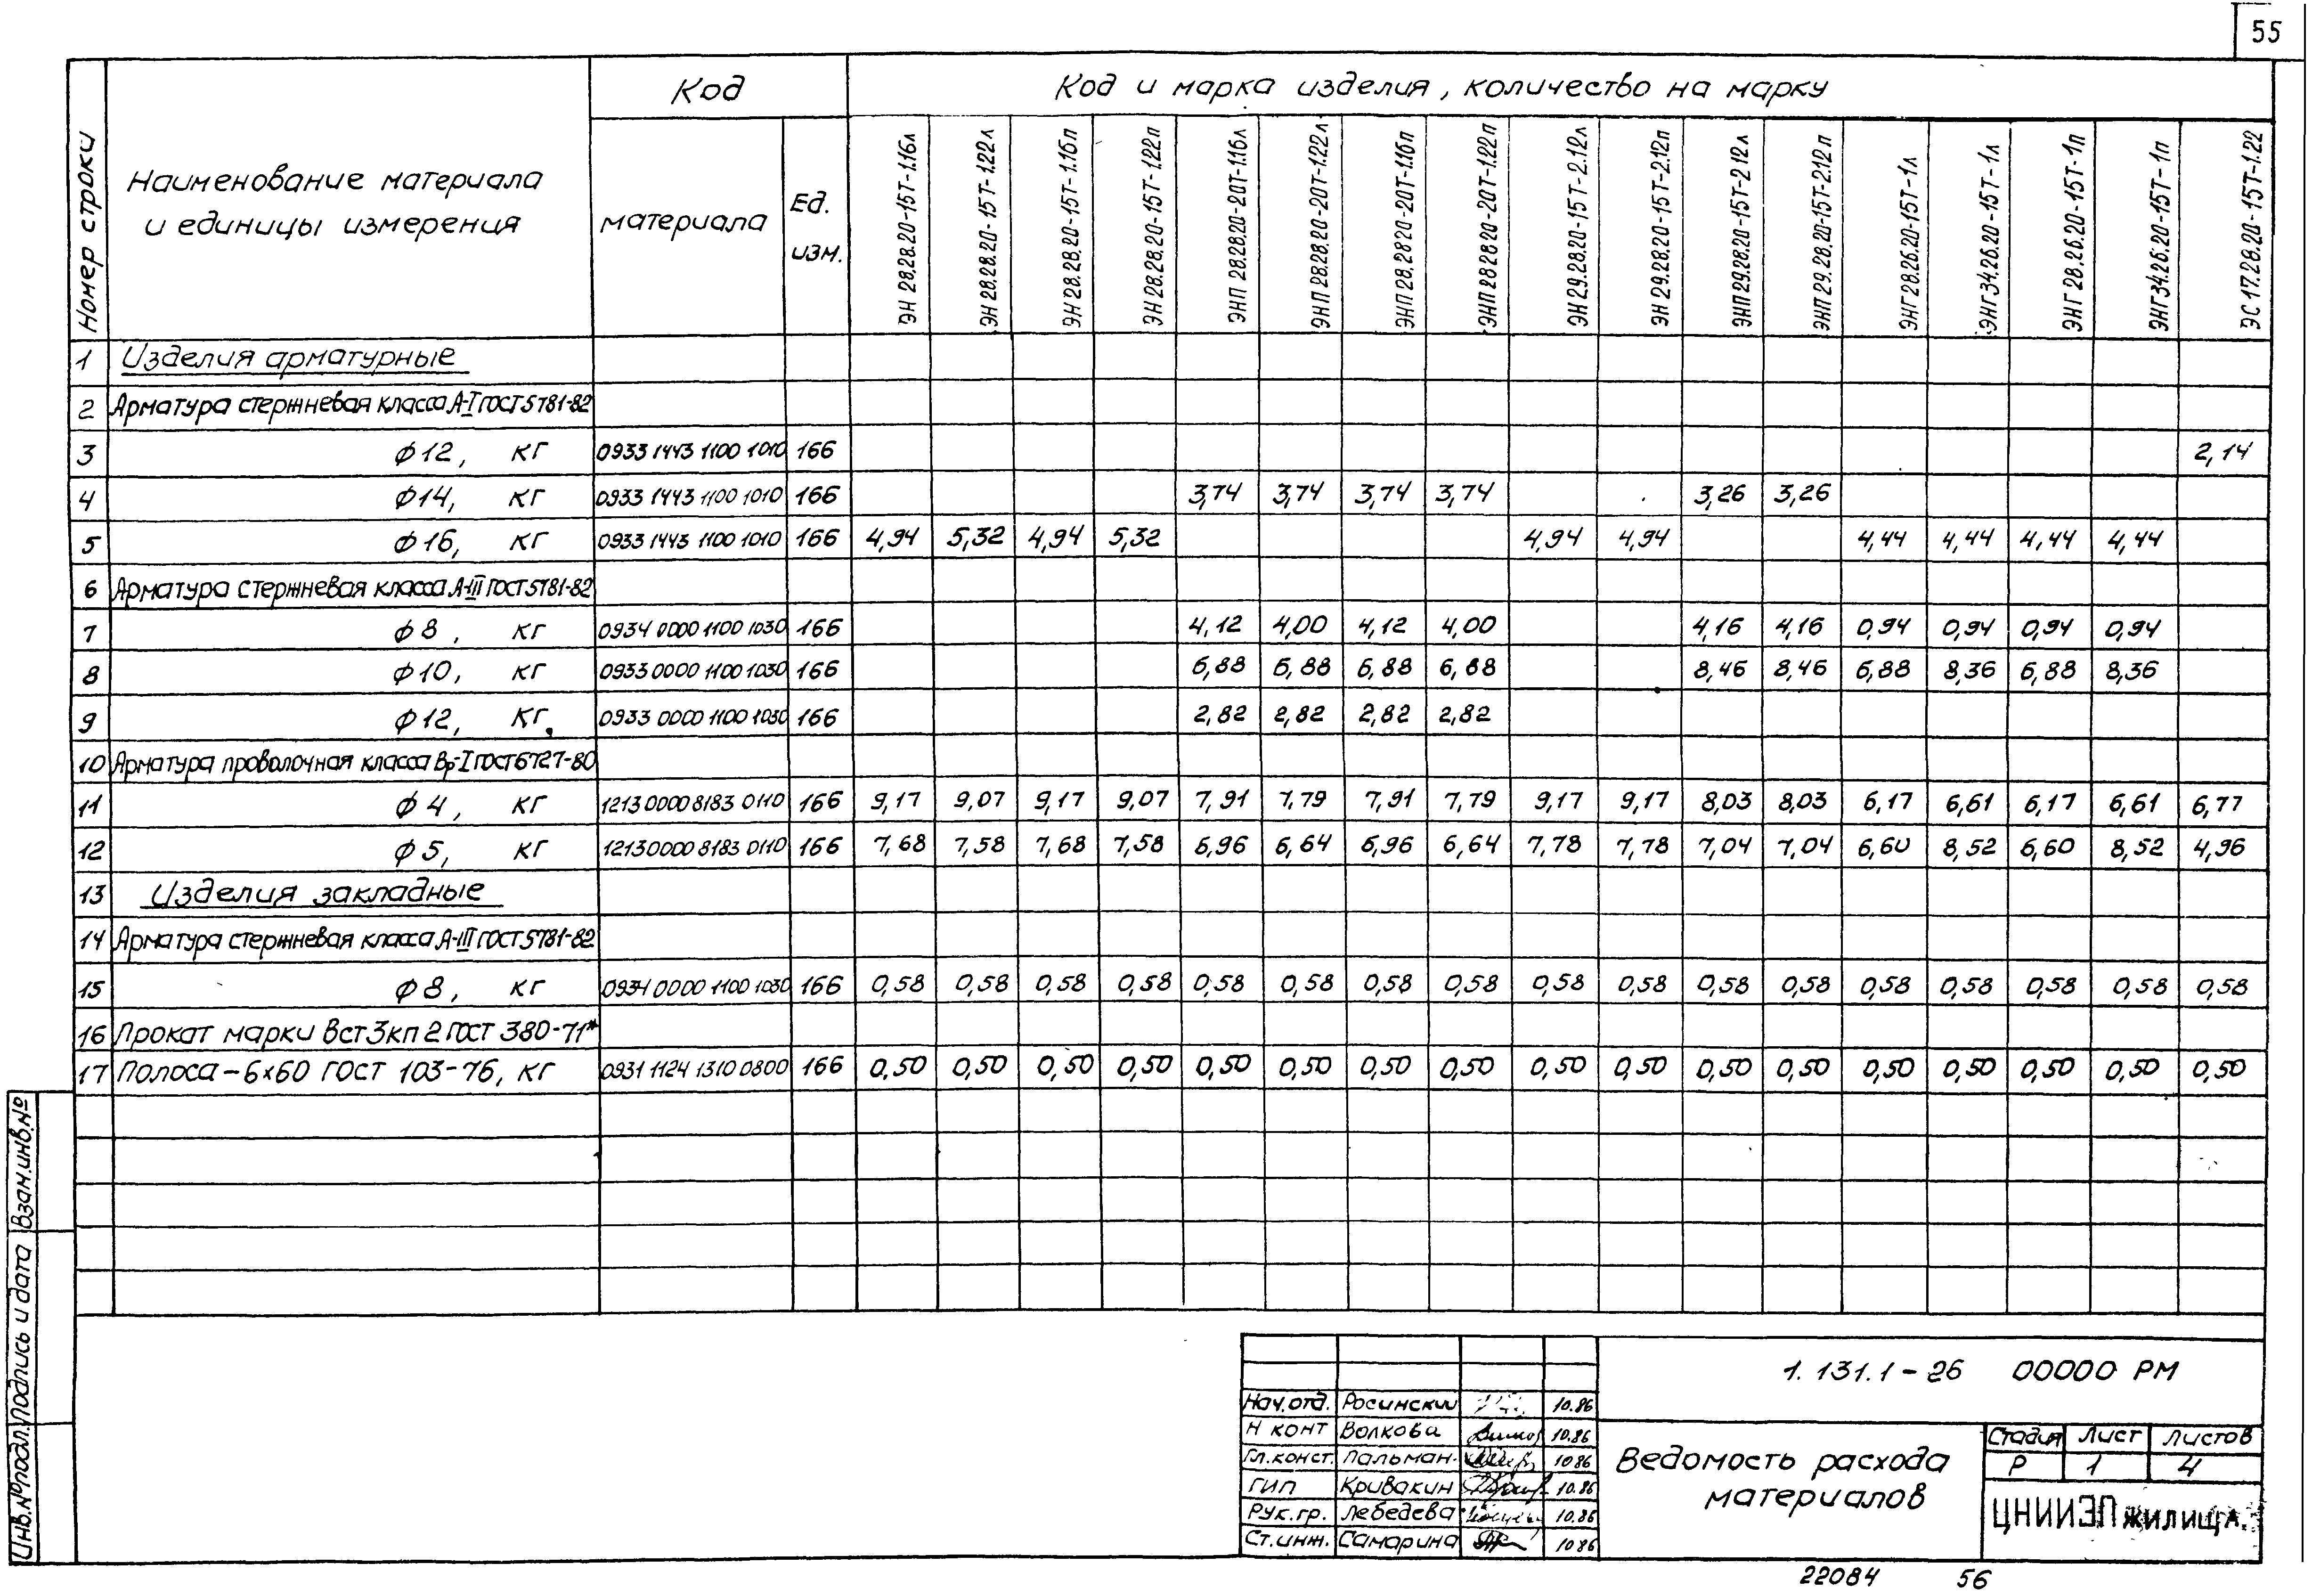 55
Номер строки
Наименование материала
и единицы измерения
Код
материала
Ед.
изм.
Код и марка изделия, количество на марку
ЭН 28.28.20-15Т-1.16л
ЭН 28.28.20-15Т-1.22л
ЭН 28.28.20-15Т-1.16п
ЭН 28.28.20-15Т-1.22п
ЭНП 28.28.20-20Т-1.16л
ЭНП 28.28.20-20Т-1.22л
ЭНП 28.28.20-20Т-1.16п
ЭНП 28.28.20-20Т-1.22п
ЭН 29.28.20-15Т-2.12л
ЭН 29.28.20-15Т-2.12п
ЭНП 29.28.20-15Т-2.12л
ЭНП 29.28.20-15Т-2.12п
ЭНГ 28.26.20-15Т-1л
ЭНГ 34.26.20-15Т-1л
ЭНГ 28.26.20-15Т-1п
ЭНГ 34.26.20-15Т-1п
ЭС 17.28.20-15Т-1.22
1 Изделия арматурные
2 Арматура стержневая класса А-I ГОСТ 5781-82
3 ф12, кг 0933 1443 1100 1010 166 2,14
4 ф14, кг 0933 1443 1100 1010 166 3,74 3,74 3,74 3,74 3,26 3,26
5 ф16, кг 0933 1443 1100 1010 166 4,94 5,32 4,94 5,32 4,94 4,94 4,44 4,44 4,44 4,44
6 Арматура стержневая класса А-III ГОСТ 5781-82
7 ф8, кг 0934 0000 1100 1030 166 4,12 4,00 4,12 4,00 4,16 4,16 0,94 0,94 0,94 0,94
8 ф10, кг 0933 0000 1100 1030 166 6,88 6,88 6,88 6,88 8,46 8,46 6,88 8,36 6,88 8,36
9 ф12, кг. 0933 0000 1100 1030 166 2,82 2,82 2,82 2,82
10 Арматура проволочная класса Вр-I ГОСТ 6727-80
11 ф4, кг 1213 0000 8183 0110 166 9,17 9,07 9,17 9,07 7,91 7,79 7,91 7,79 9,17 9,17 8,03 8,03 6,17 6,61 6,17 6,61 6,77
12 ф5, кг 1213 0000 8183 0110 166 7,68 7,58 7,68 7,58 6,96 6,64 6,96 6,64 7,78 7,78 7,04 7,04 6,60 8,52 6,60 8,52 4,96
13 Изделия закладные
14 Арматура стержневая класса А-III ГОСТ 5781-82
15 ф8, кг 0934 0000 1100 1030 166 0,58 0,58 0,58 0,58 0,58 0,58 0,58 0,58 0,58 0,58 0,58 0,58 0,58 0,58 0,58 0,58 0,58
16 Прокат марки Вст3кп2 ГОСТ 380-71*
17 Полоса-6х60 ГОСТ 103-76, кг 0931 1124 1310 0800 166 0,50 0,50 0,50 0,50 0,50 0,50 0,50 0,50 0,50 0,50 0,50 0,50 0,50 0,50 0,50 0,50 0,50
Взам.инв.№
Подпись и дата
Инв.№подл.
Нач.отд. Росинский 10.86
Н конт Волкова 10.86
Гл.конст. Пальман 10.86
ГИП Кривакин 10.86
Рук.гр. Лебедева 10.86
Ст.инж. Самарина 10.86
1.131.1-26 00000 РМ
Ведомость расхода
материалов
Стадия Лист Листов
Р 1 4
ЦНИИЭП жилища
22084 56